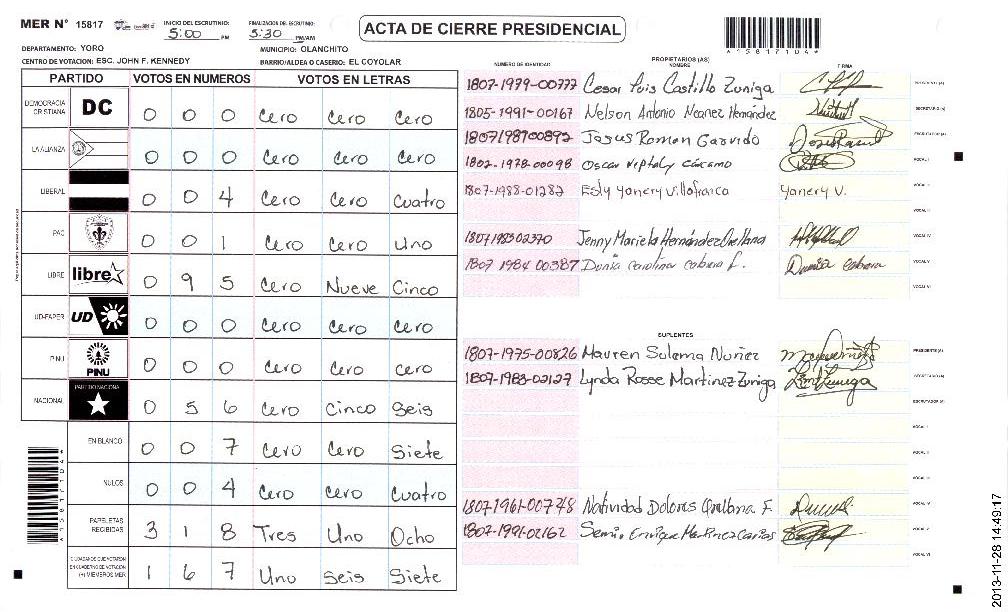 MER N° 15817
INICIO DEL ESCRUTINIO: 5:00 PM
FINALIZACION DEL ESCRUTINIO: 5:30 PM/AM
ACTA DE CIERRE PRESIDENCIAL
*15817104*
DEPARTAMENTO: YORO
MUNICIPIO: OLANCHITO
CENTRO DE VOTACION: ESC. JOHN F. KENNEDY
BARRIO/ALDEA O CASERIO: EL COYOLAR
PARTIDO VOTOS EN NUMEROS VOTOS EN LETRAS
DEMOCRACIA CRISTIANA DC 0 0 0 Cero Cero Cero
LA ALIANZA 0 0 0 Cero Cero Cero
LIBERAL 0 0 4 Cero Cero Cuatro
PAC 0 0 1 Cero Cero Uno
LIBRE libre 0 9 5 Cero Nueve Cinco
UD-FAPER UD 0 0 0 Cero Cero Cero
PINU PINU 0 0 0 Cero Cero Cero
NACIONAL PARTIDO NACIONAL 0 5 6 Cero Cinco Seis
EN BLANCO 0 0 7 Cero Cero Siete
NULOS 0 0 4 Cero Cero Cuatro
PAPELETAS RECIBIDAS 3 1 8 Tres Uno Ocho
CIUDADANOS QUE VOTARON EN CUADERNO DE VOTACION (+) MIEMBROS MER 1 6 7 Uno Seis Siete
*15817104*
PROPIETARIOS (AS)
NUMERO DE IDENTIDAD NOMBRE FIRMA
1807-1979-00777 Cesar Luis Castillo Zuniga PRESIDENTE (A)
1805-1991-00167 Nelson Antonio Hernández SECRETARIO (A)
1807198700892 Jesus Roman Garrido ESCRUTADOR (A)
1807-1978-00098 Oscar Cárcamo VOCAL I
1807-1988-01282 Esly Yanery Villafranca Yanery V. VOCAL II
VOCAL III
1807198302370 Jenny Mariela Hernández Orellana VOCAL IV
1807 1984 00387 Dunia Carolina Cabrera L. Dunia Cabrera VOCAL V
VOCAL VI
SUPLENTES
1807-1975-00826 Mauren Sulema Nuñez PRESIDENTE (A)
1807-1983-02127 Lynda Rosse Martinez Zuniga SECRETARIO (A)
ESCRUTADOR (A)
VOCAL I
VOCAL II
VOCAL III
1807-1961-00748 Natividad Dolores Orellana F. VOCAL IV
1807-1991-02162 Enrique Martinez VOCAL V
VOCAL VI
2013-11-28 14:49:17